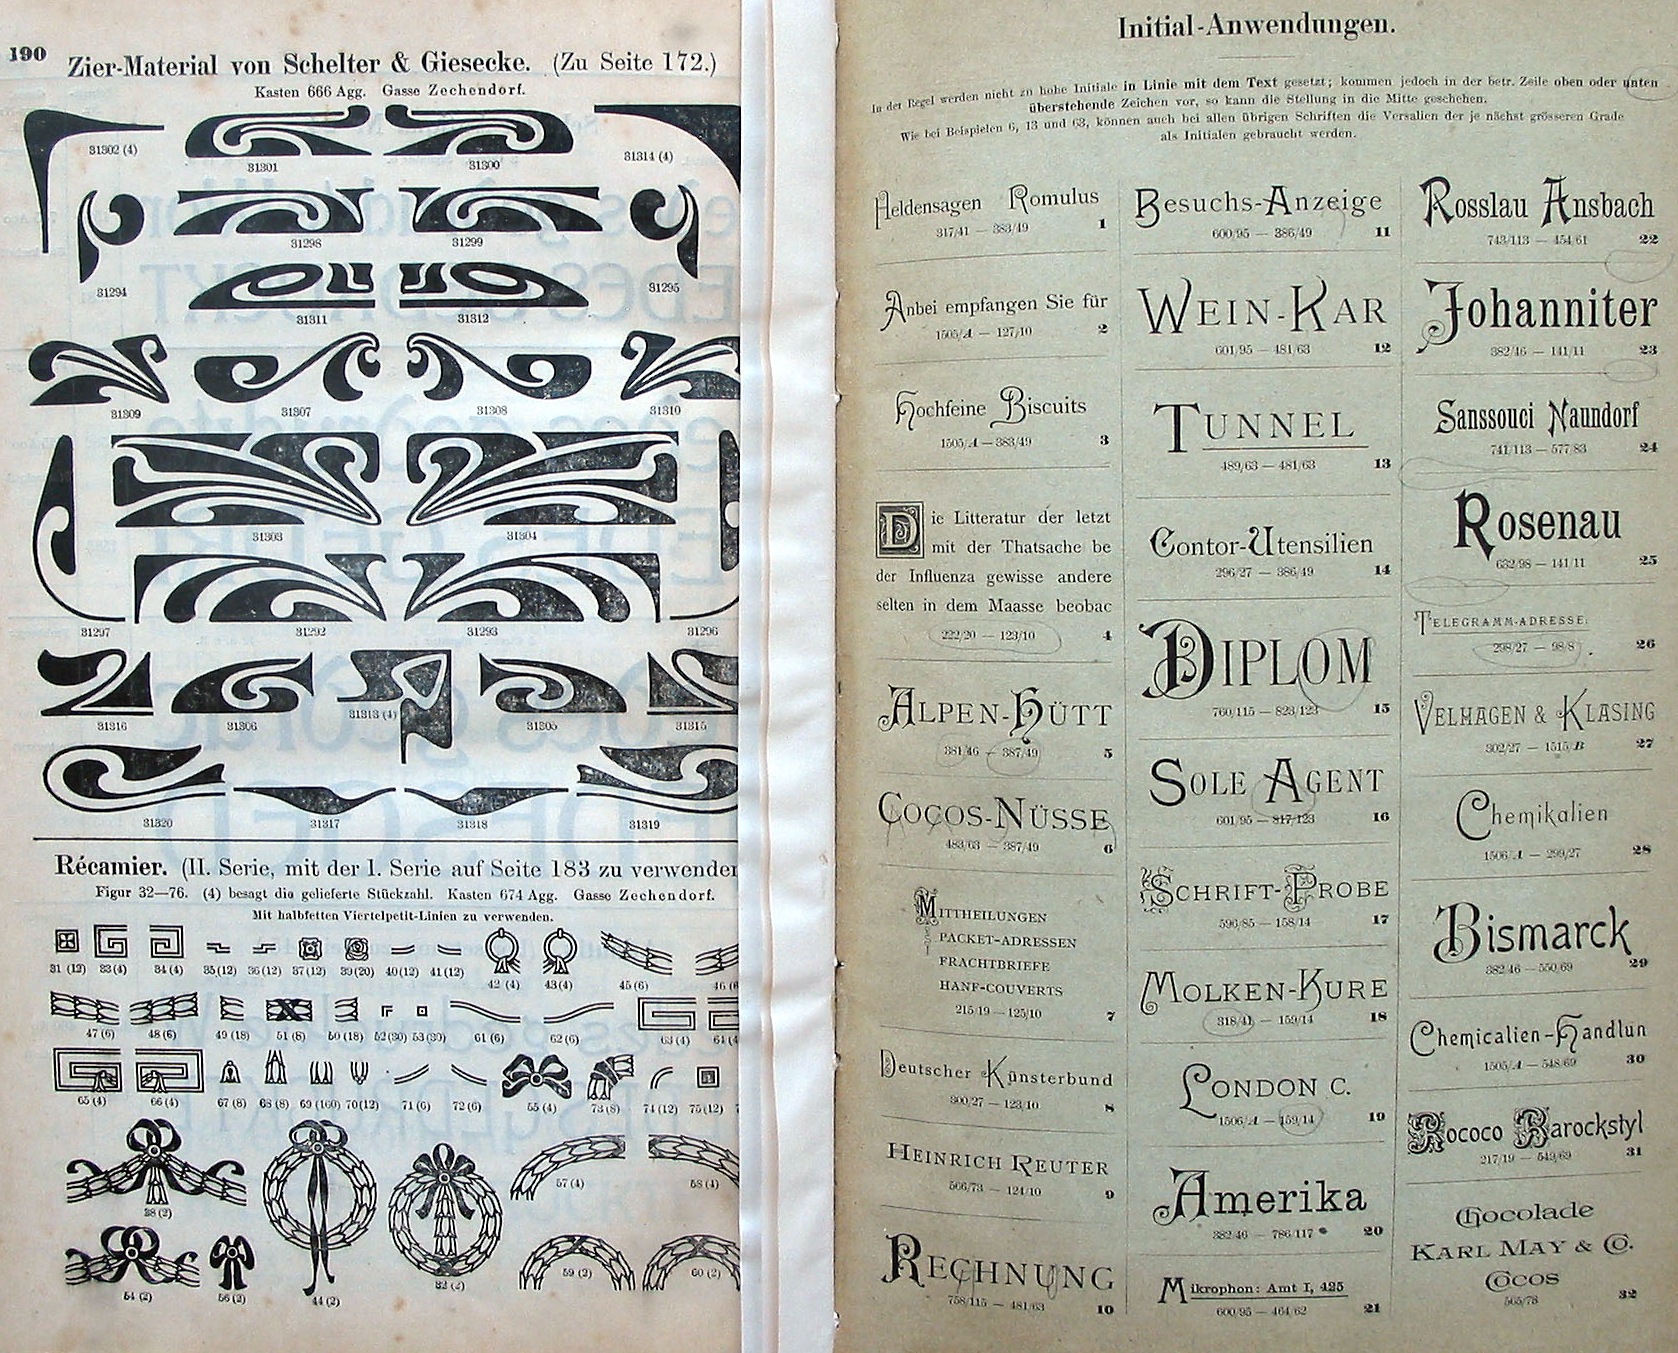 190
Zier-Material von Schelter & Giesecke. (Zu Seite 172.)
Kasten 666 Agg. Gasse Zechendorf.
31302 (4)
31301
31300
31314 (4)
31298
31299
31294
31311
31312
31295
31309
31307
31308
31310
31303
31304
31297
31292
31293
31296
31316
31306
31313 (4)
31305
31315
31320
31317
31318
31319
Récamier. (II. Serie, mit der I. Serie auf Seite 183 zu verwenden
Figur 32—76. (4) besagt die gelieferte Stückzahl. Kasten 674 Agg. Gasse Zechendorf.
Mit halbfetten Viertelpetit-Linien zu verwenden.
31 (12) 33 (4) 34 (4) 35 (12) 36 (12) 37 (12) 39 (20) 40 (12) 41 (12) 42 (4) 43 (4) 45 (6) 46 (6
47 (6) 48 (6) 49 (18) 51 (8) 50 (18) 52 (30) 53 (30) 61 (6) 62 (6) 63 (4) 64 (4
65 (4) 66 (4) 67 (8) 68 (8) 69 (160) 70 (12) 71 (6) 72 (6) 55 (4) 73 (8) 74 (12) 75 (12)
38 (2)
57 (4) 58 (4)
54 (2) 56 (2) 44 (2) 32 (2) 59 (2) 60 (2)
Initial-Anwendungen.
In der Regel werden nicht zu hohe Initiale in Linie mit dem Text gesetzt; kommen jedoch in der betr. Zeile oben oder unten
überstehende Zeichen vor, so kann die Stellung in die Mitte geschehen.
Wie bei Beispielen 6, 13 und 63, können auch bei allen übrigen Schriften die Versalien der je nächst grösseren Grade
als Initialen gebraucht werden.
Heldensagen Romulus
317/41 — 383/49 1
Anbei empfangen Sie für
1505/A — 127/10 2
Hochfeine Biscuits
1505/A — 383/49 3
Die Litteratur der letzt
mit der Thatsache be
der Influenza gewisse andere
selten in dem Maasse beobac
222/20 — 123/10 4
ALPEN-HÜTT
381/46 — 387/49 5
COCOS-NÜSSE
483/63 — 387/49 6
MITTHEILUNGEN
PACKET-ADRESSEN
FRACHTBRIEFE
HANF-COUVERTS
215/19 — 125/10 7
Deutscher Künsterbund
300/27 — 123/10 8
HEINRICH REUTER
566/73 — 124/10 9
RECHNUNG
758/115 — 481/63 10
Besuchs-Anzeige
600/95 — 386/49 11
WEIN-KAR
601/95 — 481/63 12
TUNNEL
489/63 — 481/63 13
Contor-Utensilien
296/27 — 386/49 14
DIPLOM
760/115 — 823/123 15
SOLE AGENT
601/95 — 817/123 16
SCHRIFT-PROBE
596/85 — 158/14 17
MOLKEN-KURE
318/41 — 159/14 18
LONDON C.
1506/A — 159/14 19
Amerika
382/46 — 786/117 20
Mikrophon: Amt I, 425
600/95 — 464/62 21
Rosslau Ansbach
743/113 — 454/61 22
Johanniter
382/46 — 141/11 23
Sanssouci Naundorf
741/113 — 577/83 24
Rosenau
632/98 — 141/11 25
TELEGRAMM-ADRESSE:
298/27 — 98/8 26
VELHAGEN & KLASING
302/27 — 1515/B 27
Chemikalien
1506/A — 299/27 28
Bismarck
382/46 — 550/69 29
Chemicalien-Handlun
1505/A — 548/69 30
Rococo Barockstyl
217/19 — 549/69 31
Chocolade
KARL MAY & CO.
COCOS
565/78 32